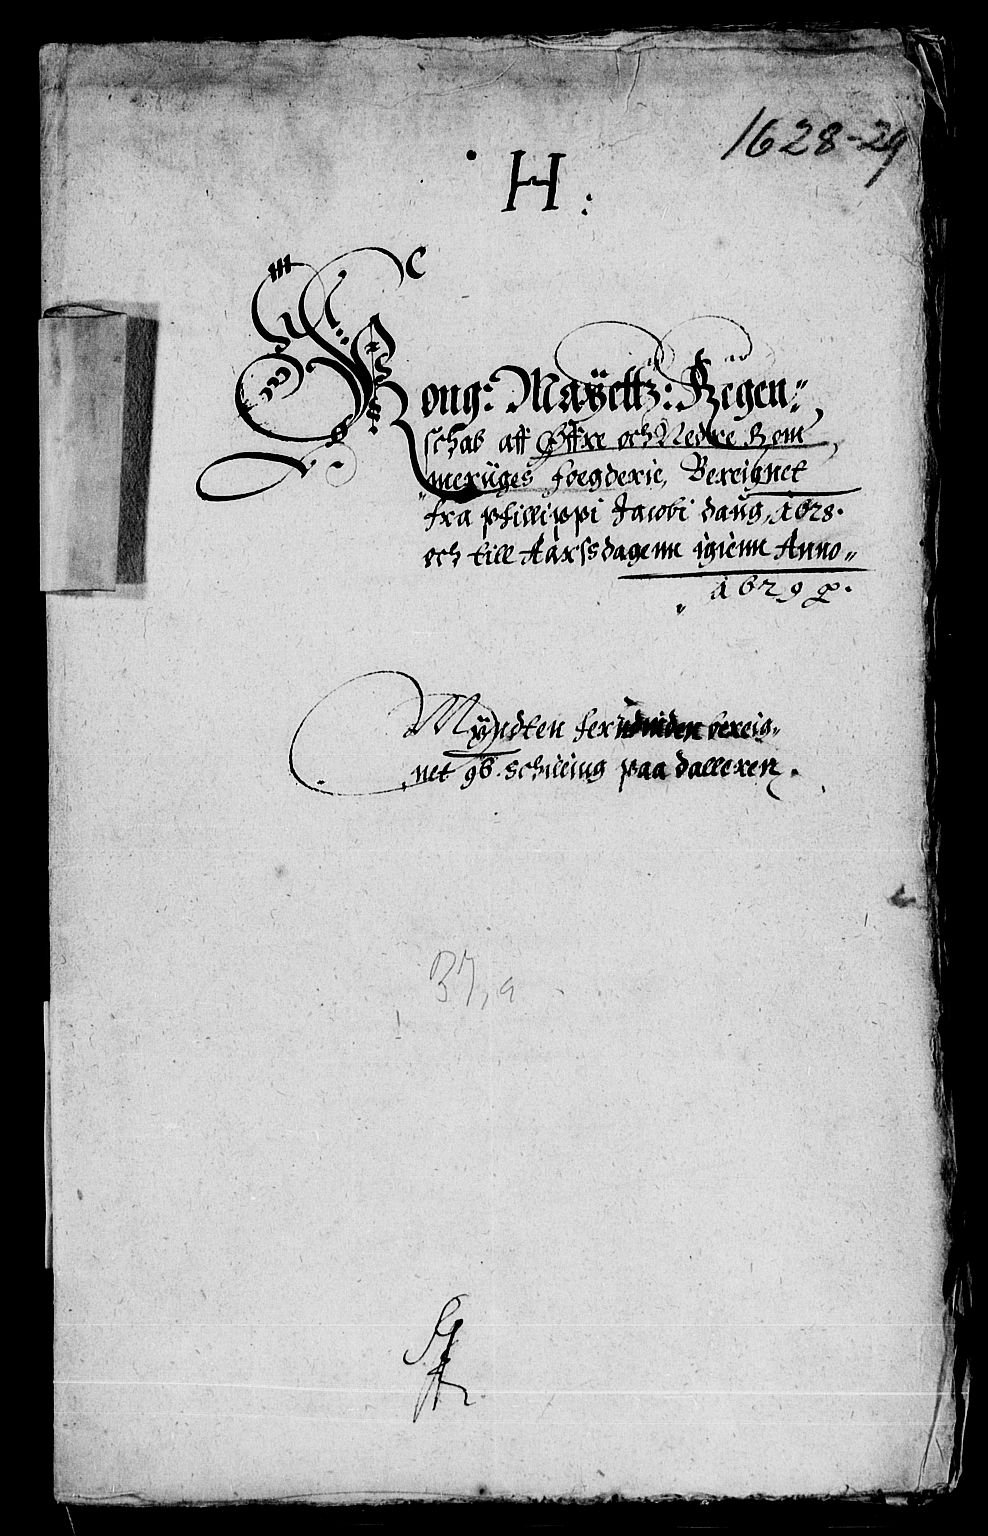 1628-29
H:
Kong: Mayettz: Regen"
schab aff Øffre och Nedre Rom
merüges foegderie, Bereignet
fra Phillippi Jacobi daug, 1628.
och till Aarssdagenn igienn Anno"
1629
Myndten herudinden bereig"
net 96 schilling paa dalleren.
37, a